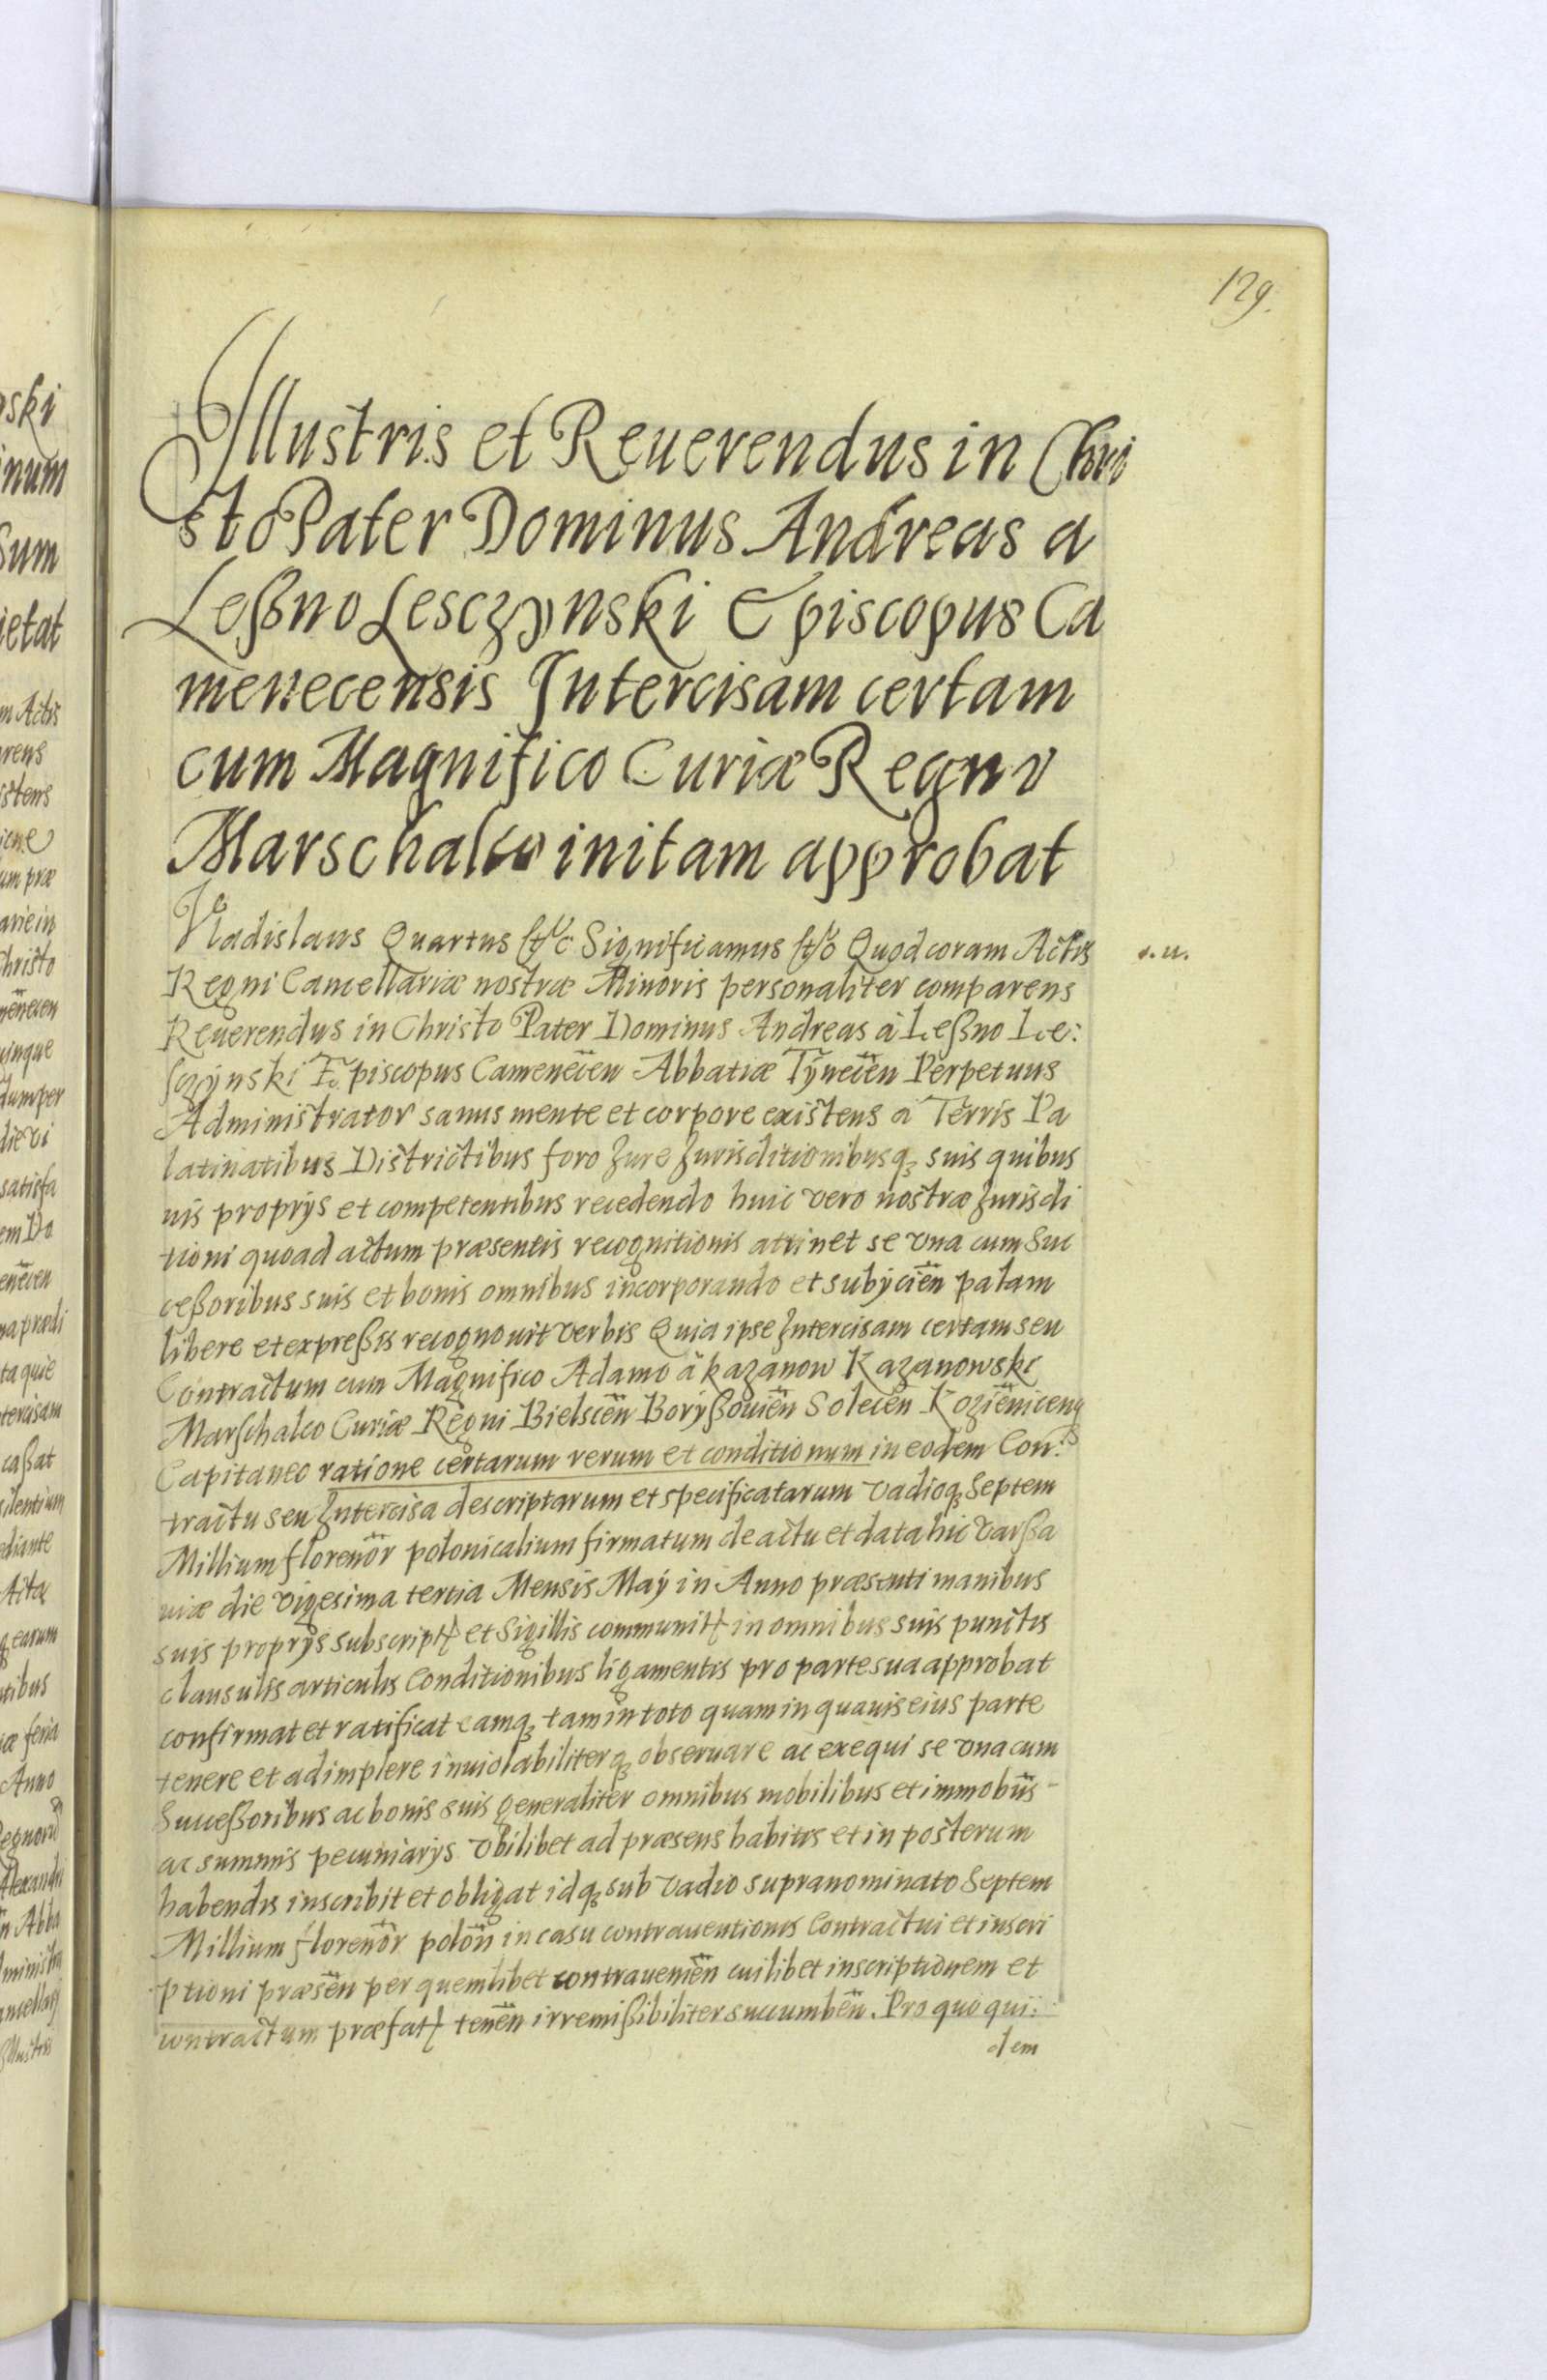 129.
Illustris et Reuerendus in Chri
sto Pater Dominus Andreas a
Leßno Lesczÿnski Episcopus Ca
menecensis Intercisam certam
cum Magnifico Curiæ Regni
Marschalco initam approbat
Vladislaus Quartus etc Significamus etc Quod coram Actis
Regni Cancellariæ nostræ Minoris personaliter comparens
Reuerendus in Christo Pater Dominus Andreas à Leßno Le:
sczÿnski Episcopus Camenecen̄ Abbatiæ Tÿnecen̄ Perpetuus
Administrator sanus mente et corpore existens à Terris Pa
latinatibus Districtibus foro Jure Jurisditionibusq̨ suis quibus
uis proprÿs et competentibus recedendo huic vero nostræ Jurisdi
tioni quoad actum præsentis recognitionis attinet se vna cum Suc
ceßoribus suis et bonis omnibus incorporando et subÿcien̄ palam
libere et expreßis recognouit verbis Quia ipse Intercisam certam seu
Contractum cum Magnifico Adamo à kazanow Kazanowski
Marschalco Curiæ Regni Bielscen̄ Borÿßouien̄ Solecen̄ Kozienicenq̨
Capitaneo ratione certarum rerum et conditionum in eodem Con:
tractu seu Intercisa descriptarum et specificatarum vadioq̨ Septem
Millium florenor̄ polonicalium firmatum de actu et data hic Varßa
uiæ die vigesima tertia Mensis Maÿ in Anno præsenti manibus
suis proprÿs subscript et Sigillis communit in omnibus suis punctis
clausulis articulis Conditionibus ligamentis pro parte sua approbat
confirmat et ratificat eamq̨ tam in toto quam in quauis eius parte
tenere et adimplere inuiolabiliterq̨ obseruare ac exequi se vna cum
Succeßoribus ac bonis suis generaliter omnibus mobilibus et immobiis̄
ac summis pecuniarÿs vbilibet ad præsens habitis et in posterum
habendis inscribit et obligat idq̨ sub vadio supranominato Septem
Millium florenor̄ polon̄ in casu contrauentionis Contractui et inscri
ptioni præsen̄ per quemlibet contrauenien̄ cuilibet inscriptionem et
contractum præfat tenen̄ irremißibiliter succumben̄. Pro quo qui:
dem